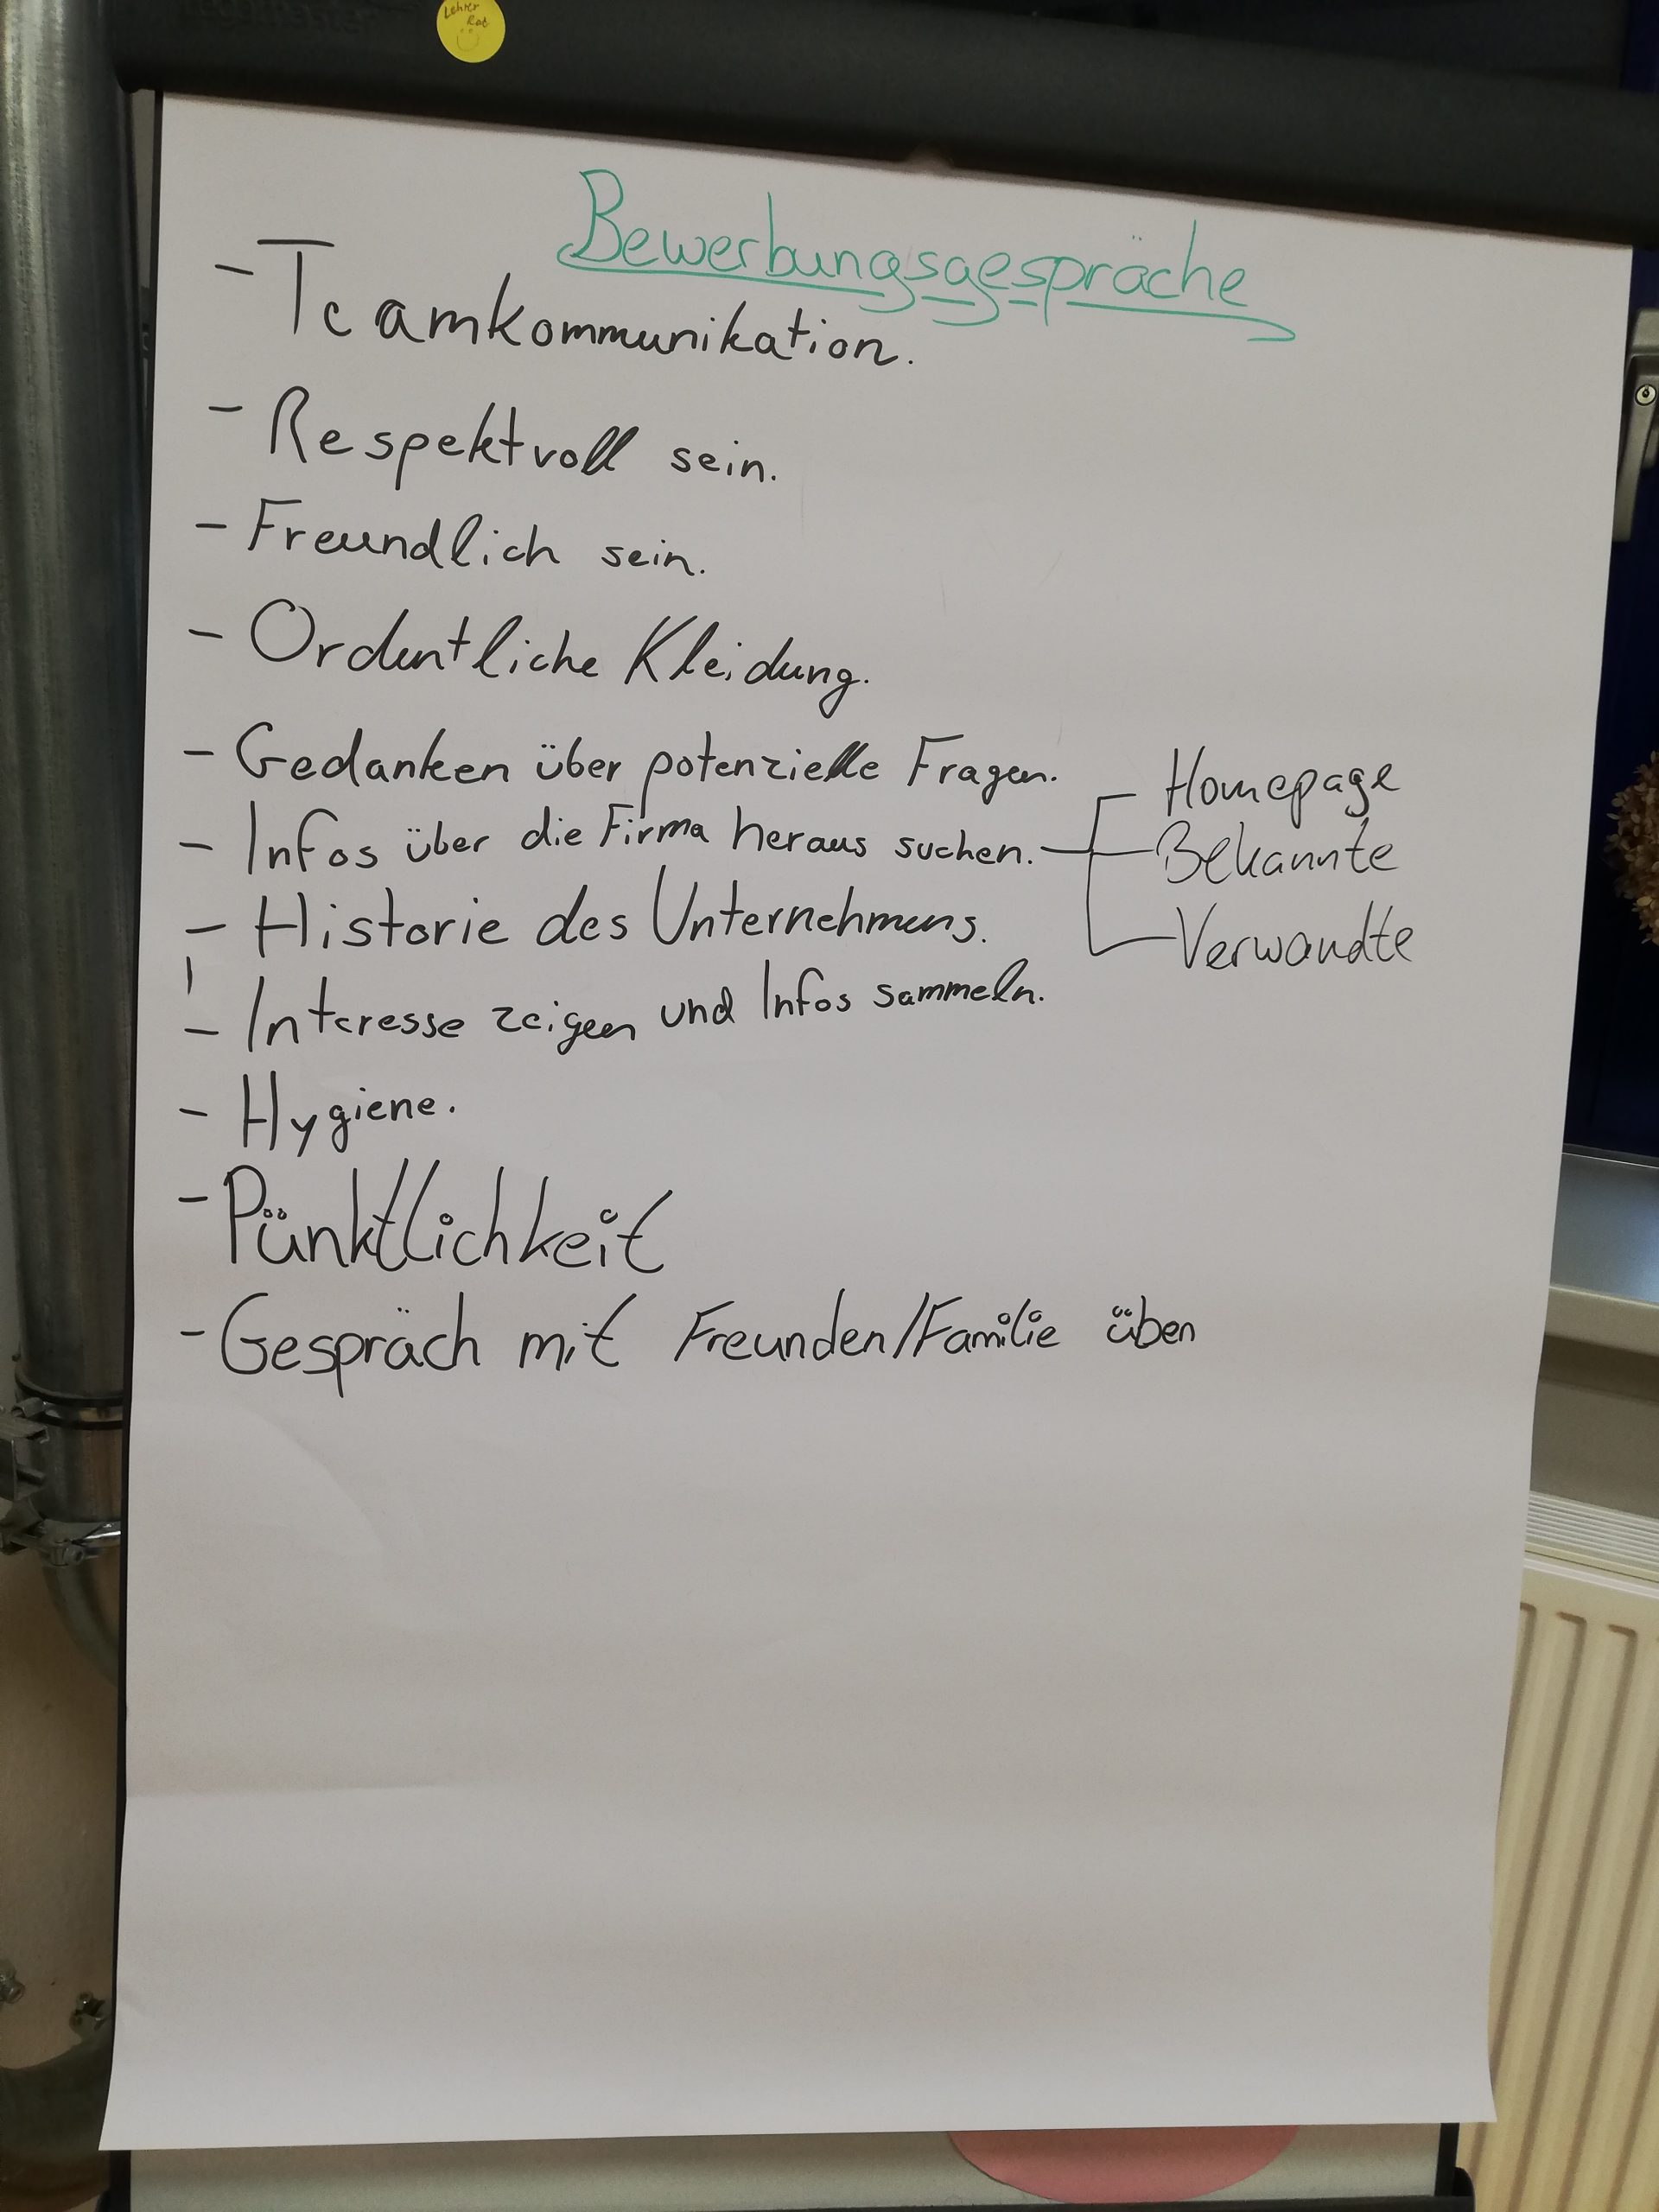 Lehrer
Rat
Bewerbungsgespräche
- Teamkommunikation.
- Respektvoll sein.
- Freundlich sein.
- Ordentliche Kleidung.
- Gedanken über potenzielle Fragen.
- Infos über die Firma heraus suchen.
Homepage
Bekannte
Verwandte
- Historie des Unternehmens.
- Interesse zeigen und Infos sammeln.
- Hygiene.
- Pünktlichkeit
- Gespräch mit Freunden/Familie üben